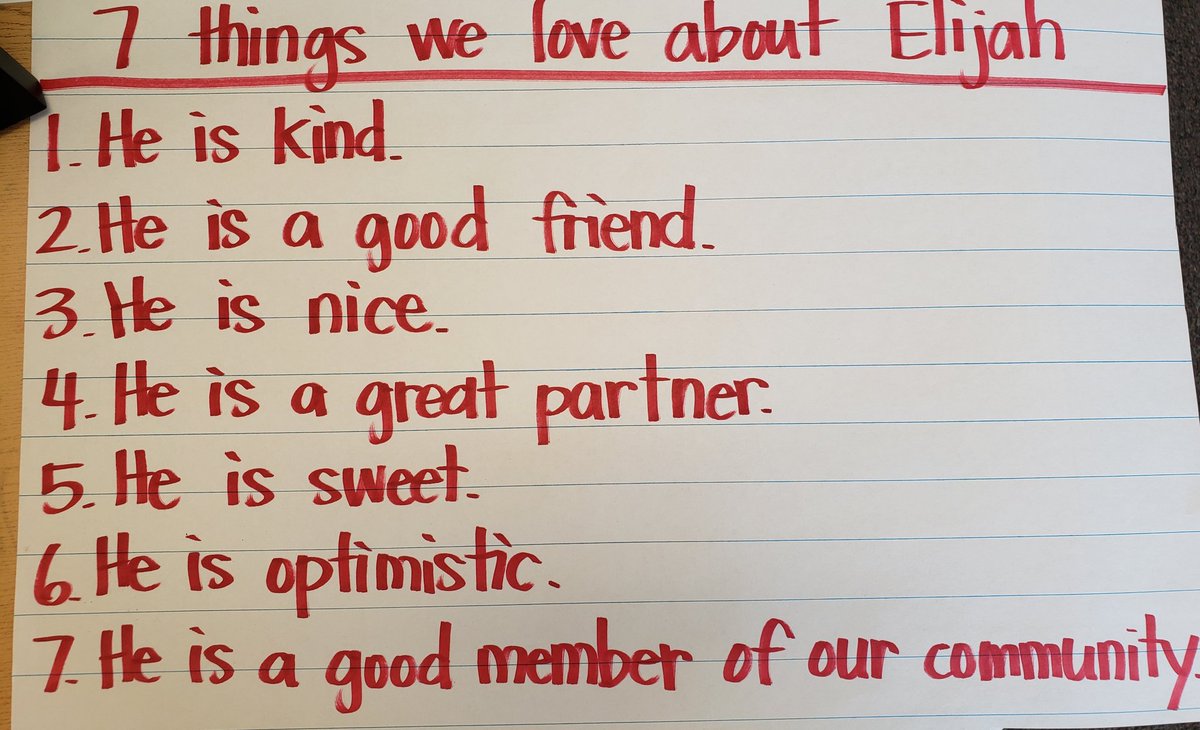 7 things we love about Elijah
1. He is kind.
2. He is a good friend.
3. He is nice.
4. He is a great partner.
5. He is sweet.
6. He is optimistic.
7. He is a good member of our community.